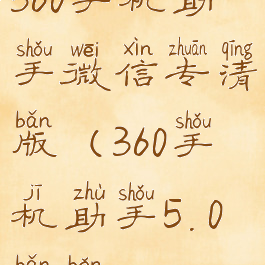 360手机助
shǒu wēi xìn zhuān qīng
手微信专清
bǎn shǒu
版（360手
jī zhù shǒu
机助手5.0
bǎn bǎn